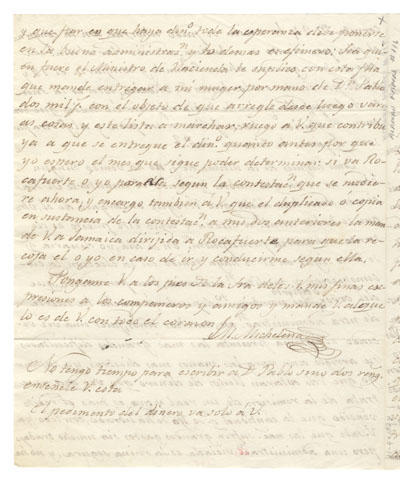 y que por eso que haya din.º toda la esperanza debe ponerse
en la buena administras.n y lo demas es efimero: Sea qui
en fuere el Ministro de Hacienda te suplico con esta fha
que mande entregar a mi muger por mano de D.n Pablo
dos mil p.s con el objeto de que arregle desde luego varias
cosas y este lista a marchar; ruego a V. que contribu
ya a que se entregue el din.º quanto antes por que
yo espero el mes que sigue poder determinar si va Ro
cafuerte o yo para segun la contestac.n que se me die
re ahora, y encargo tambien a V. que el duplicado o copia
en sustancia de la contestac.n a mis dos anteriores la man
de V. a Jamaica dirijida a Rocafuerte para que la re
coja el o yo en caso de ir y conducirme segun ella.
Pongame V. a los pies de la Sra deles V. mis finas ex
presiones a los compañeros y amigos y mande V. a lo que
lo es de V. con todo el corazon
M. Michelena
No tengo tiempo para escribir a D.n Pablo sino dos reng
enseñele V. esta
El pedimento del dinero va solo a V.